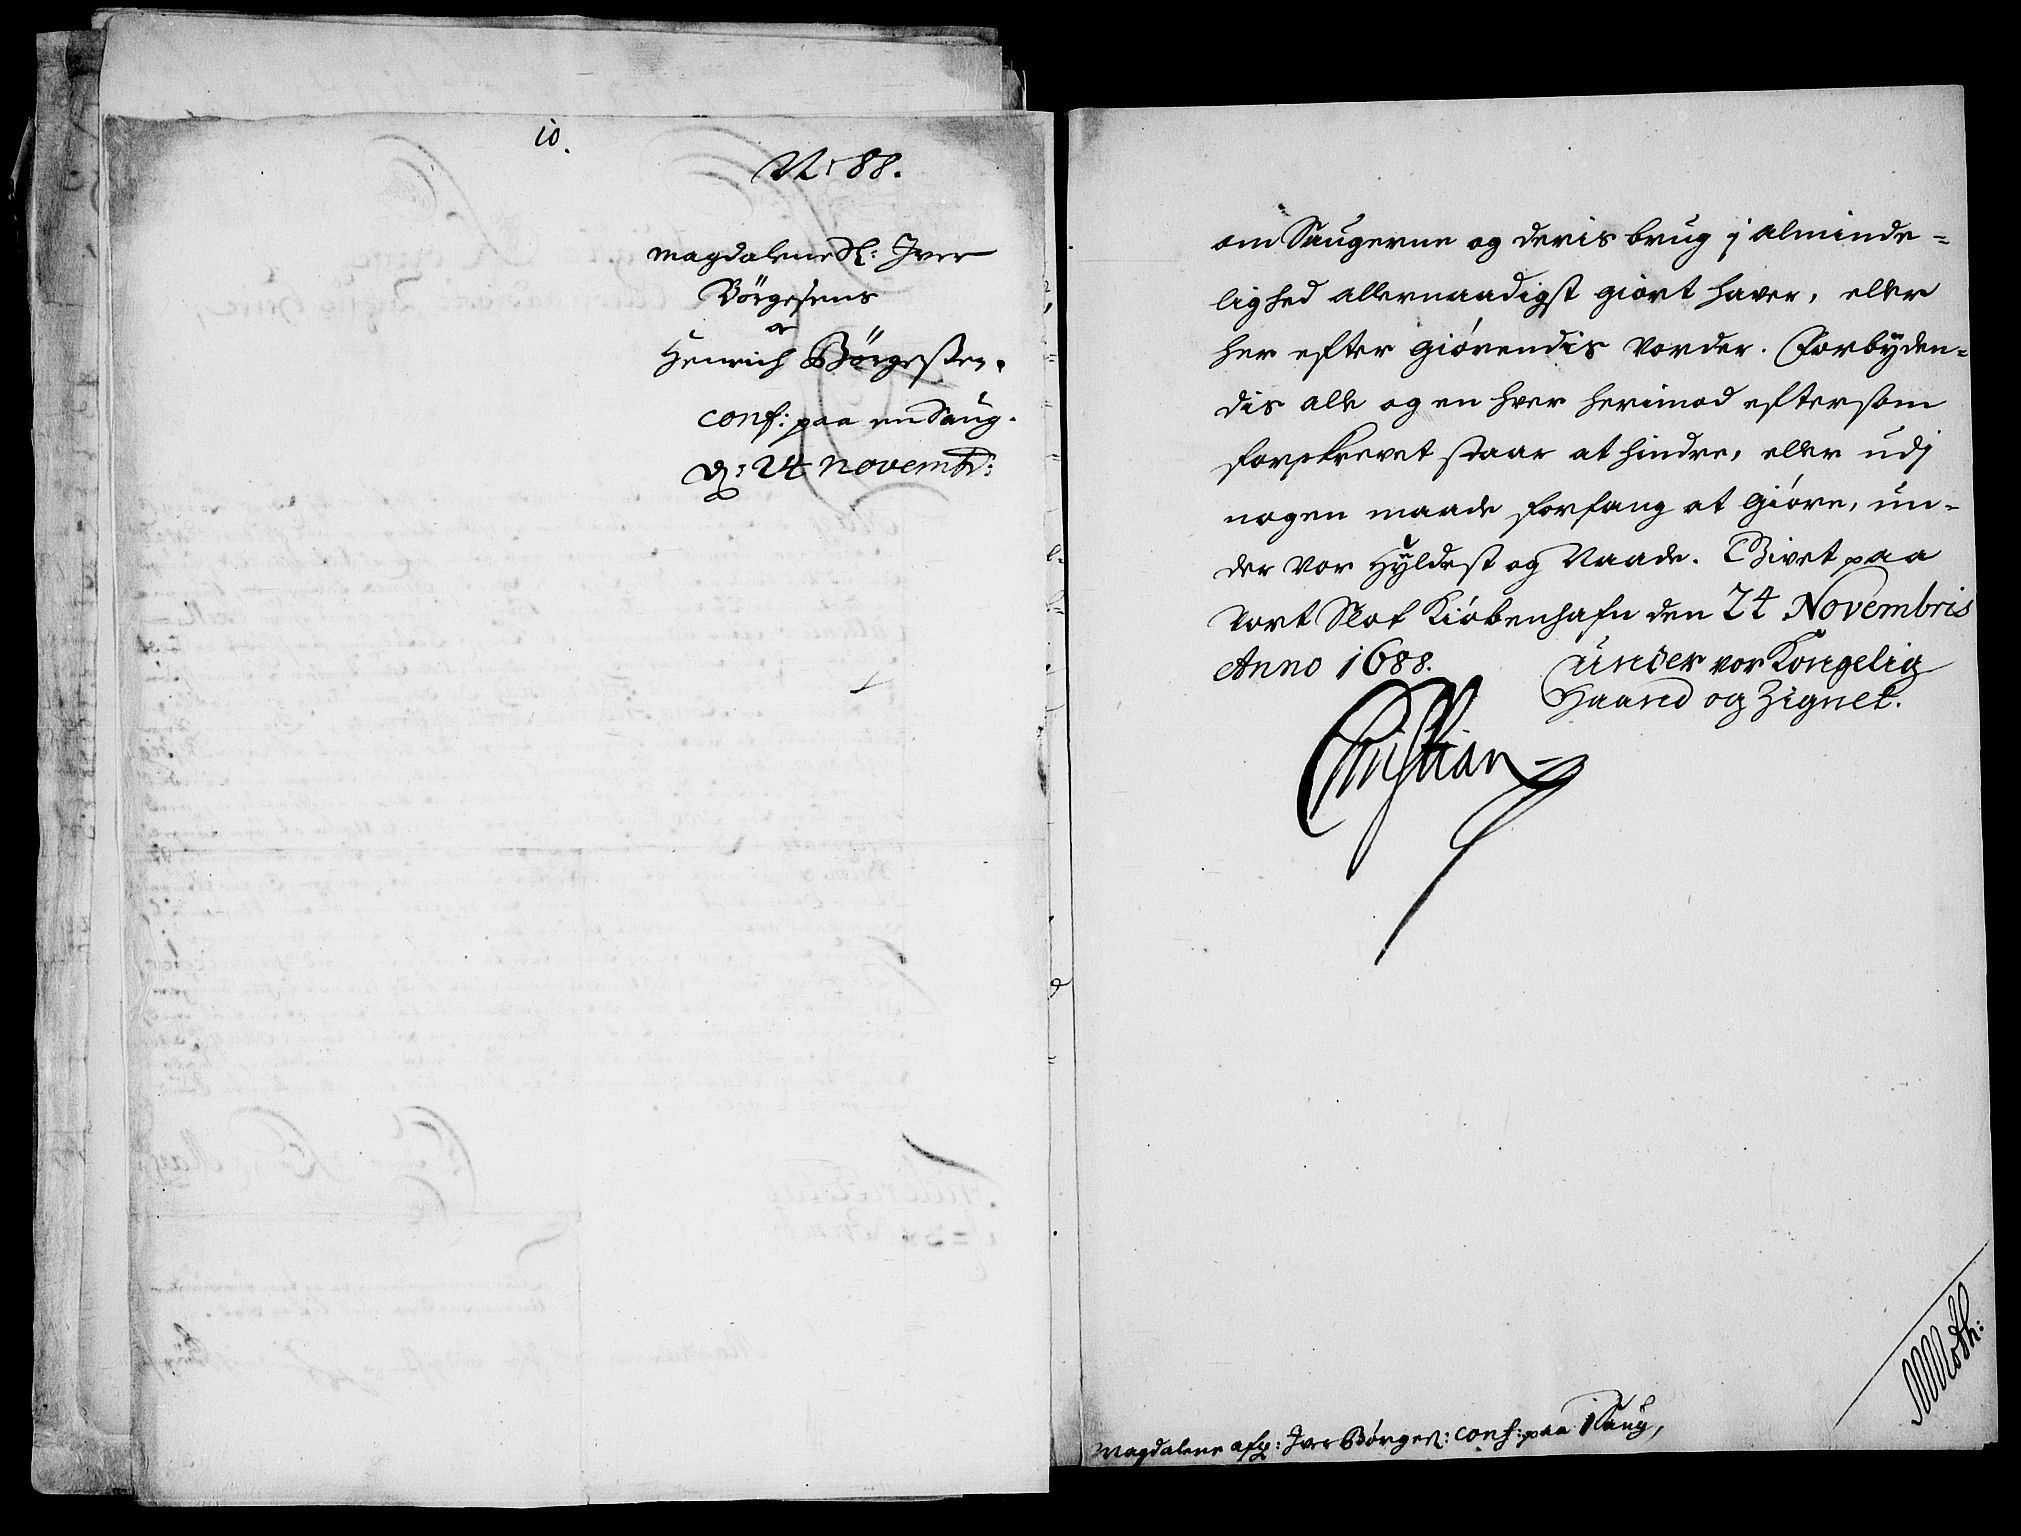 10.
N: 88.
Magdalene Sl: Iver
Börgesens
Henrich Börgesen.
conf: paa en Saug.
d: 24 novembr:
om Saugerne og deris brug j alminde=
lighed allernaadigst giort haver, eller
her efter giørendis vorder. Forbyden=
dis alle og en hver herimod eftersom
forskrevet staar at hindre, eller udj
nogen maade forfang at giøre, un=
der vor Hyldest og Naade. Givet paa
Vort Slot Kiøbenhafn den 24 Novembris
Anno 1688.
Under vor Kongelig
Haand og Zignet.
Christian
MMoth:
Magdalene afg: Iver Børges: conf: paa 1 Saug,